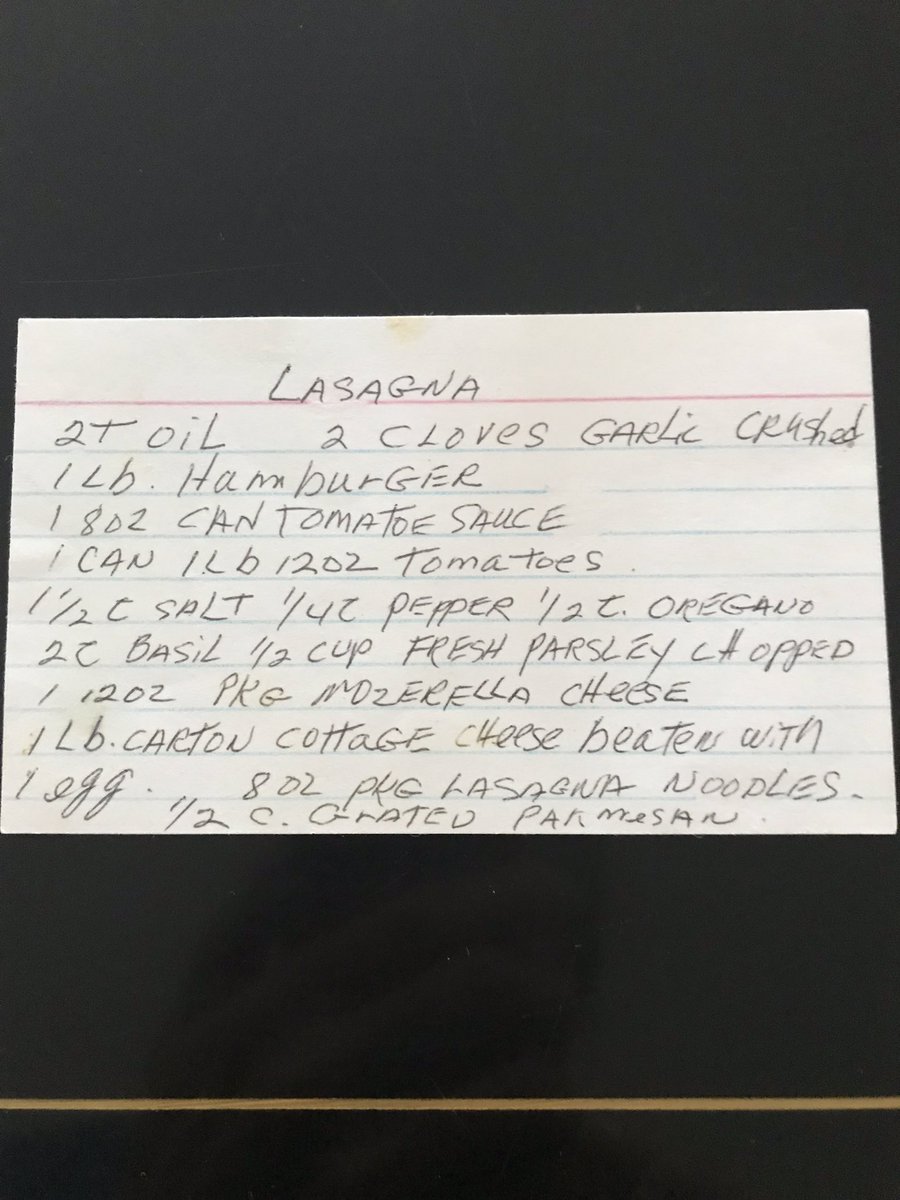 LASAGNA
2T OIL 2 CLOVES GARLIC CRUSHED
1 Lb. HAMBURGER
1 8OZ CAN TOMATOE SAUCE
1 CAN 1Lb 12OZ TOMATOES.
1 1/2 t SALT 1/4t PEPPER 1/2 t. OREGANO
2t BASIL 1/2 CUP FRESH PARSLEY CHOPPED
1 12OZ PKG MOZERELLA CHEESE
1 Lb. CARTON COTTAGE CHEESE beaten with
1 egg. 8OZ PKG LASAGNA NOODLES.
1/2 C. GRATED PARMESAN.